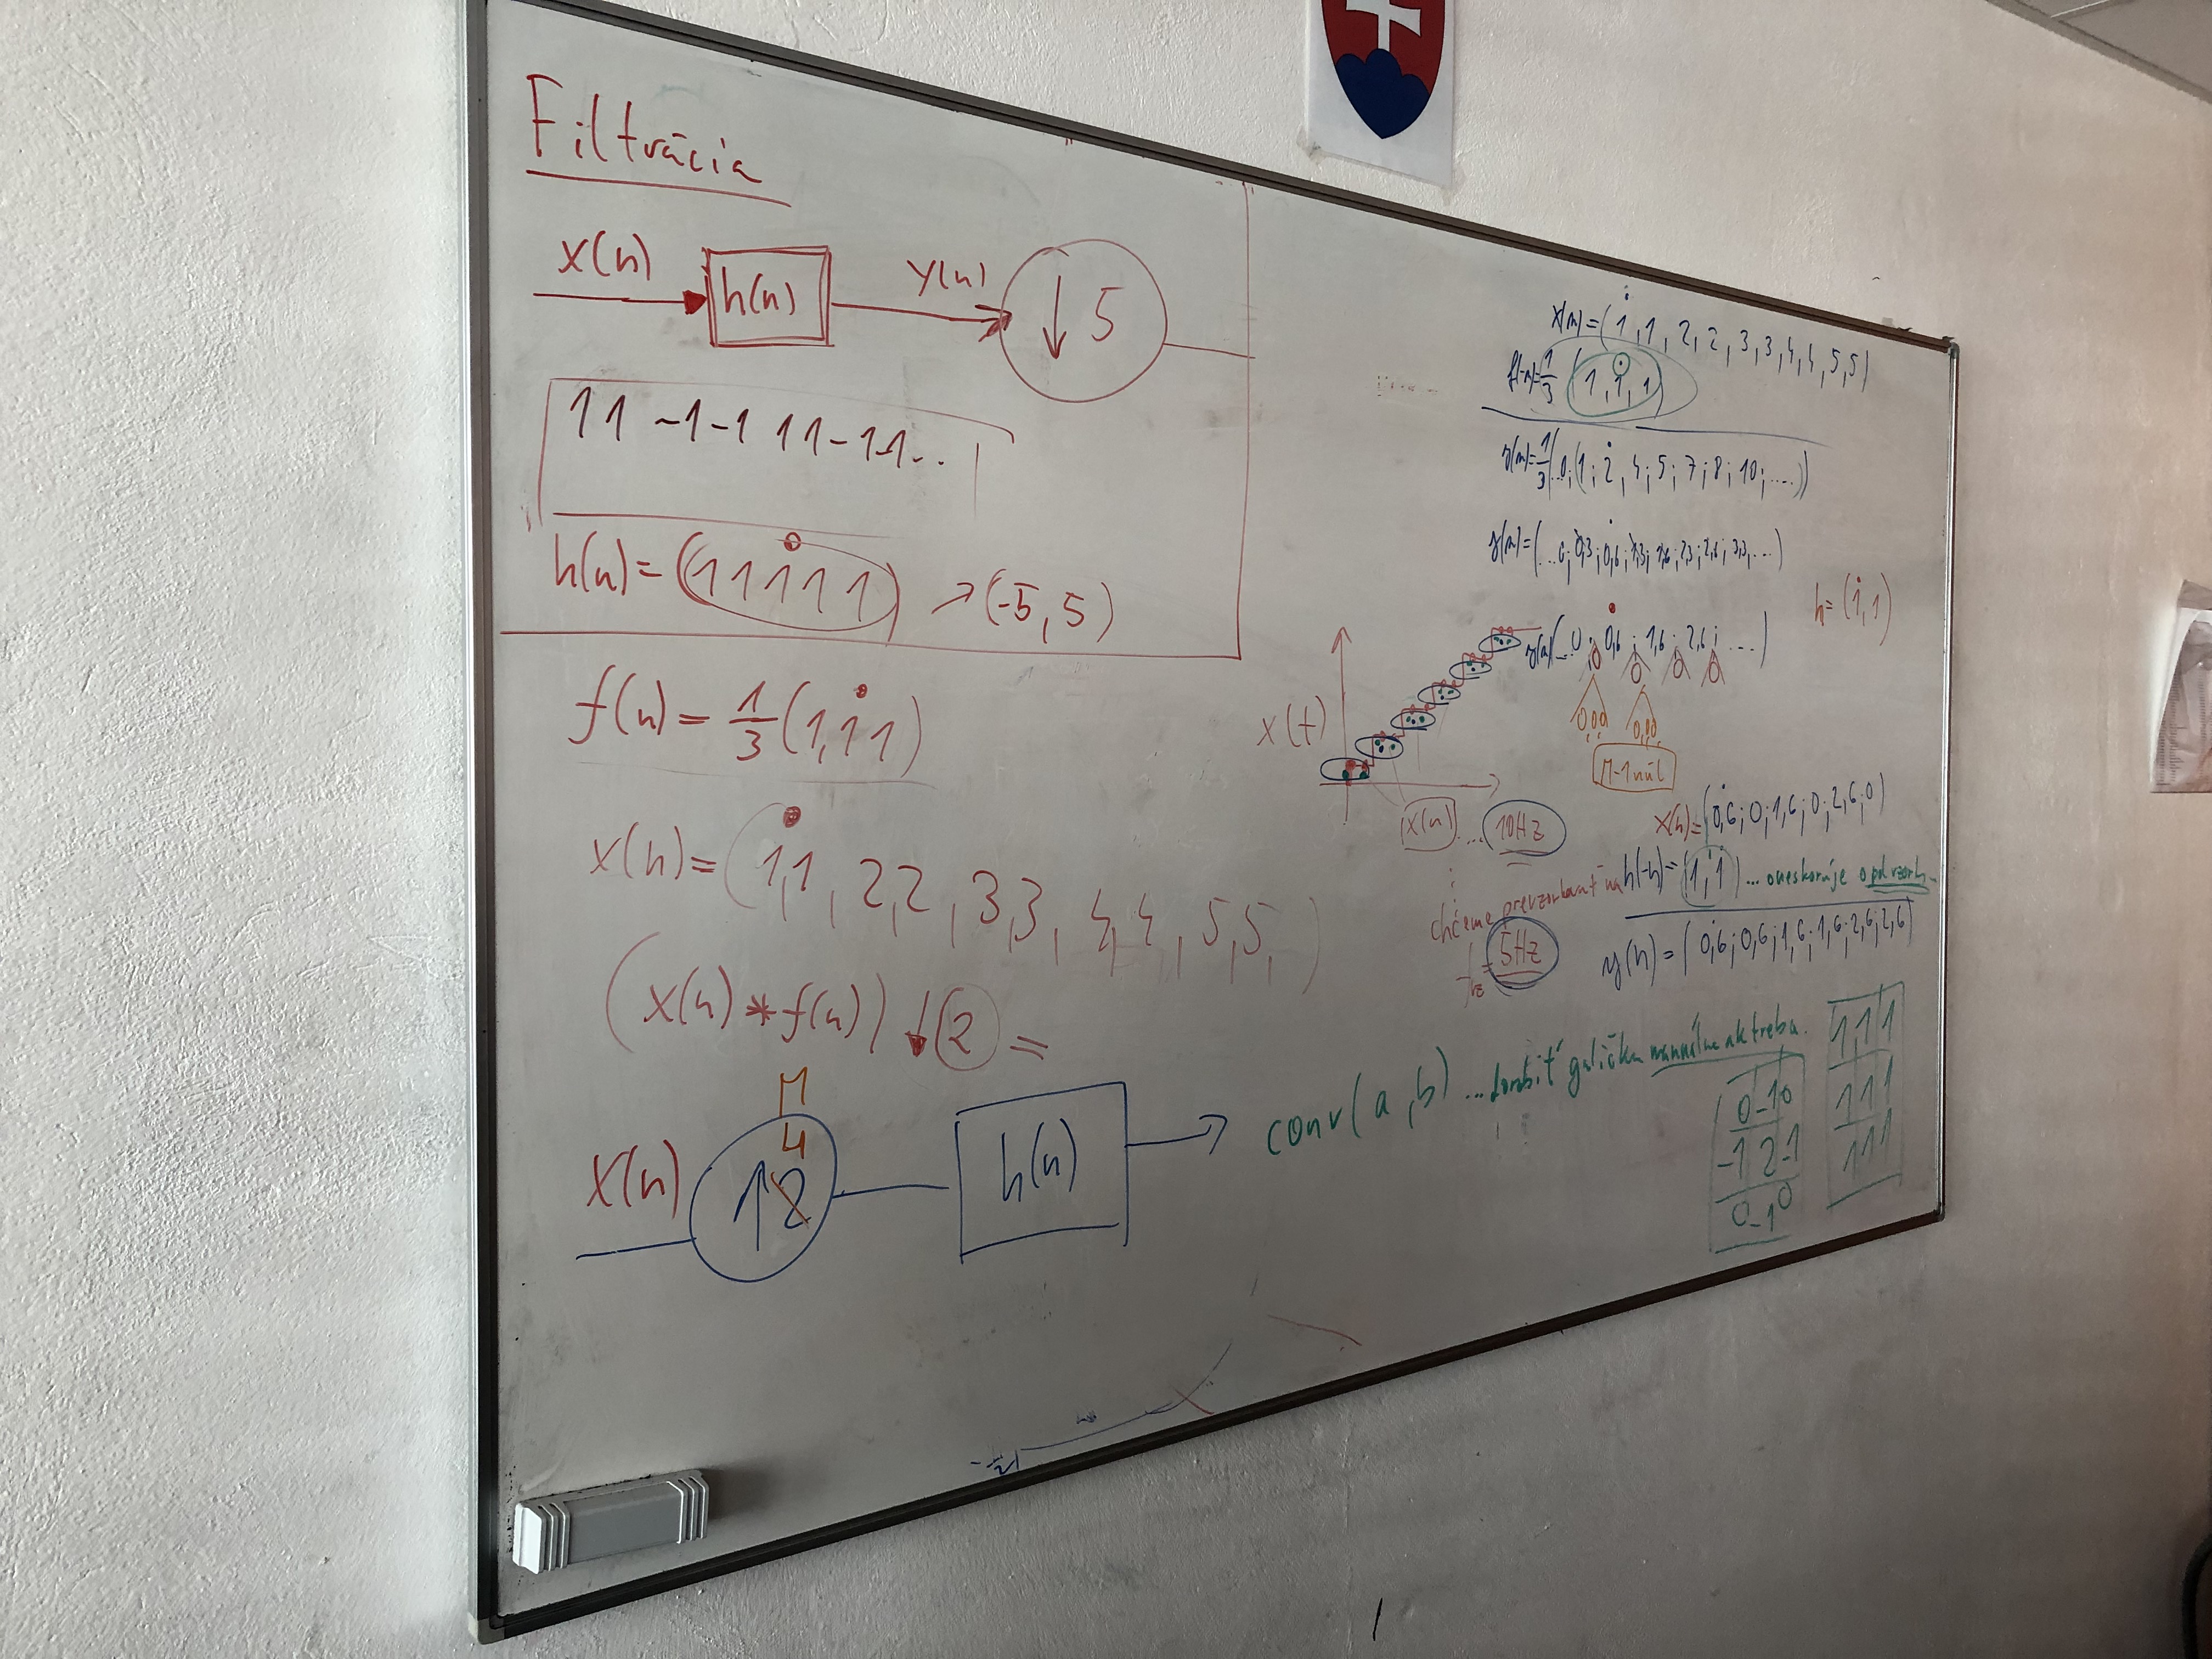 Filtrácia
x(n) h(n) y(n) ↓ 5
1 1 -1 -1 1 1 -1 1...
h(n) = (1 1 1 1 1) → (-5, 5)
f(n) = 1/3 (1, 1 1)
x(n) = (1, 1, 2, 2, 3, 3, 4, 4, 5, 5, )
(x(n) * f(n)) ↓ 2 =
M
4
x(n) ↑ 2 h(n)
x(n) = (1, 1, 2, 2, 3, 3, 4, 4, 5, 5)
f(-n) = 1/3 (1, 1, 1)
y(n) = 1/3 (...0; (1; 2, 4; 5; 7; 8; 10; ....)
y(n) = (...0; 0,3; 0,6; 1,3; 1,6; 2,3; 2,6; 3,3, ....)
h = (1, 1)
y(n) (...0; 0,6; 1,6; 2,6; ....)
0 0 0 0
0,00 0,00
M-1 núl
x(t)
x(n) ... 10Hz
chceme prevzorkovať na
fvz = 5Hz
x(n) = (0,6; 0; 1,6; 0; 2,6; 0)
h(-n) = (1, 1) ... oneskoruje o pol vzork.
y(n) = (0,6; 0,6; 1,6; 1,6; 2,6; 2,6)
conv(a, b) ... manuálne ak treba.
0 -1 0
-1 2 -1
0 -1 0
1 1 1
1 1 1
1 1 1